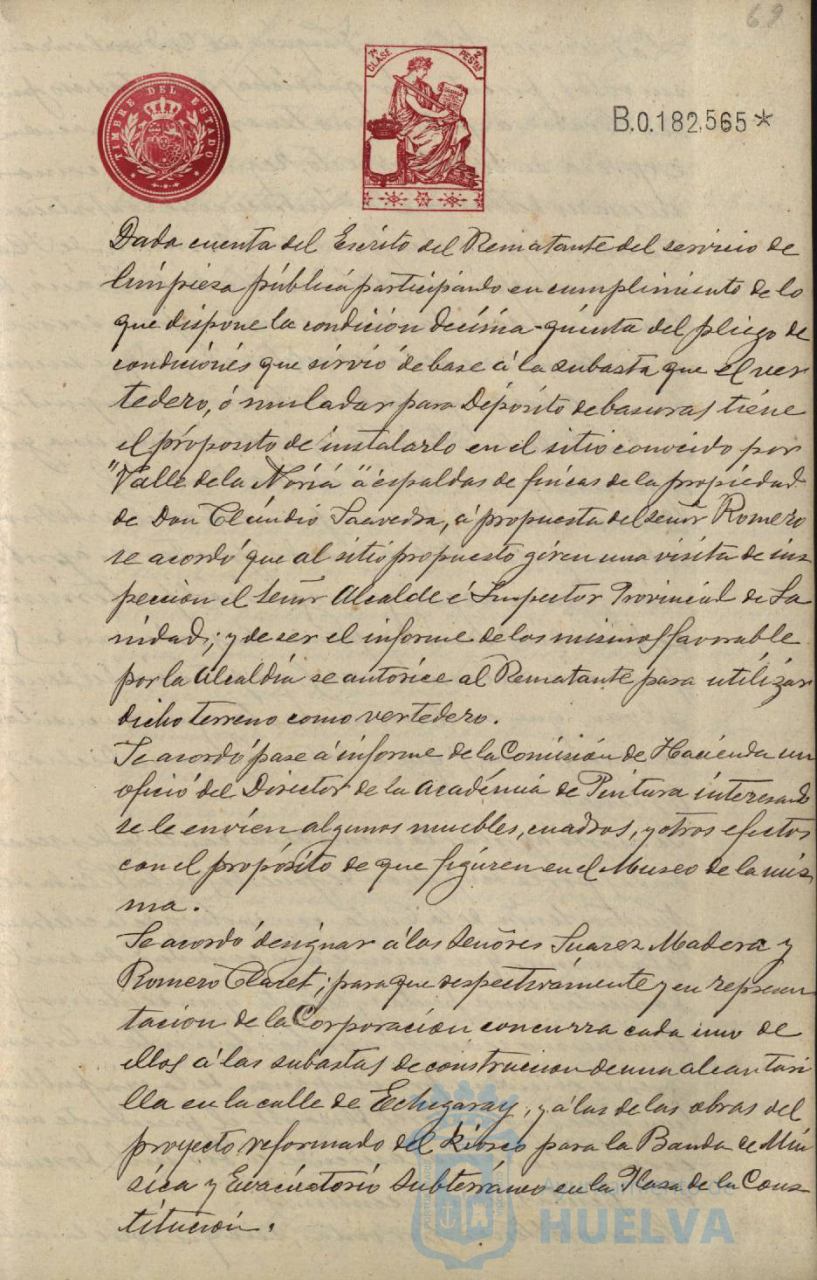 69
TIMBRE DEL ESTADO
7ª CLASE 2 PESTAS
B.0.182,565*
Dada cuenta del Escrito del Rematante del servicio de
limpieza pública participando en cumplimiento de lo
que dispone la condición decima-quinta del pliego de
condiciones que sirvió de base á la subasta que el ver
tedero, ó muladar para Depósito de basuras tiene
el próposito de instalarlo en el sitio conocido por
"Valle de la Noria" á espaldas de fincas de la propiedad
de Don Claudio Saavedra, á propuesta del señor Romero
se acordó que al sitio propuesto giren una visita de ins
pección el Señor Alcalde é Inspector Provincial de Sa
nidad; y de ser el informe de los mismos favorable
por la Alcaldía se autorice al Rematante para utilizar
dicho terreno como vertedero.
Se acordó pase á informe de la Comisión de Hacienda un
oficio del Director de la Academia de Pintura interesando
se le envíen algunos muebles, cuadros, y otros efectos
con el propósito de que figuren en el Museo de la mis
ma.
Se acordó designar á los Señores Suarez Madera y
Romero Claret; para que respectivamente y en represen
tacion de la Corporación concurra cada uno de
ellos á las subastas de construccion de una alcantari
lla en la calle de Echegaray, y á las de las obras del
proyecto reformado del Kiosco para la Banda de Mú
sica y Evacuatorio Subterráneo en la Plaza de la Cons
titución.
HUELVA